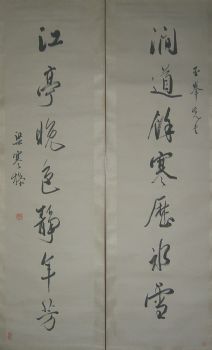 澗道餘寒歷冰雪
江亭晚色靜年芳
梁寒操